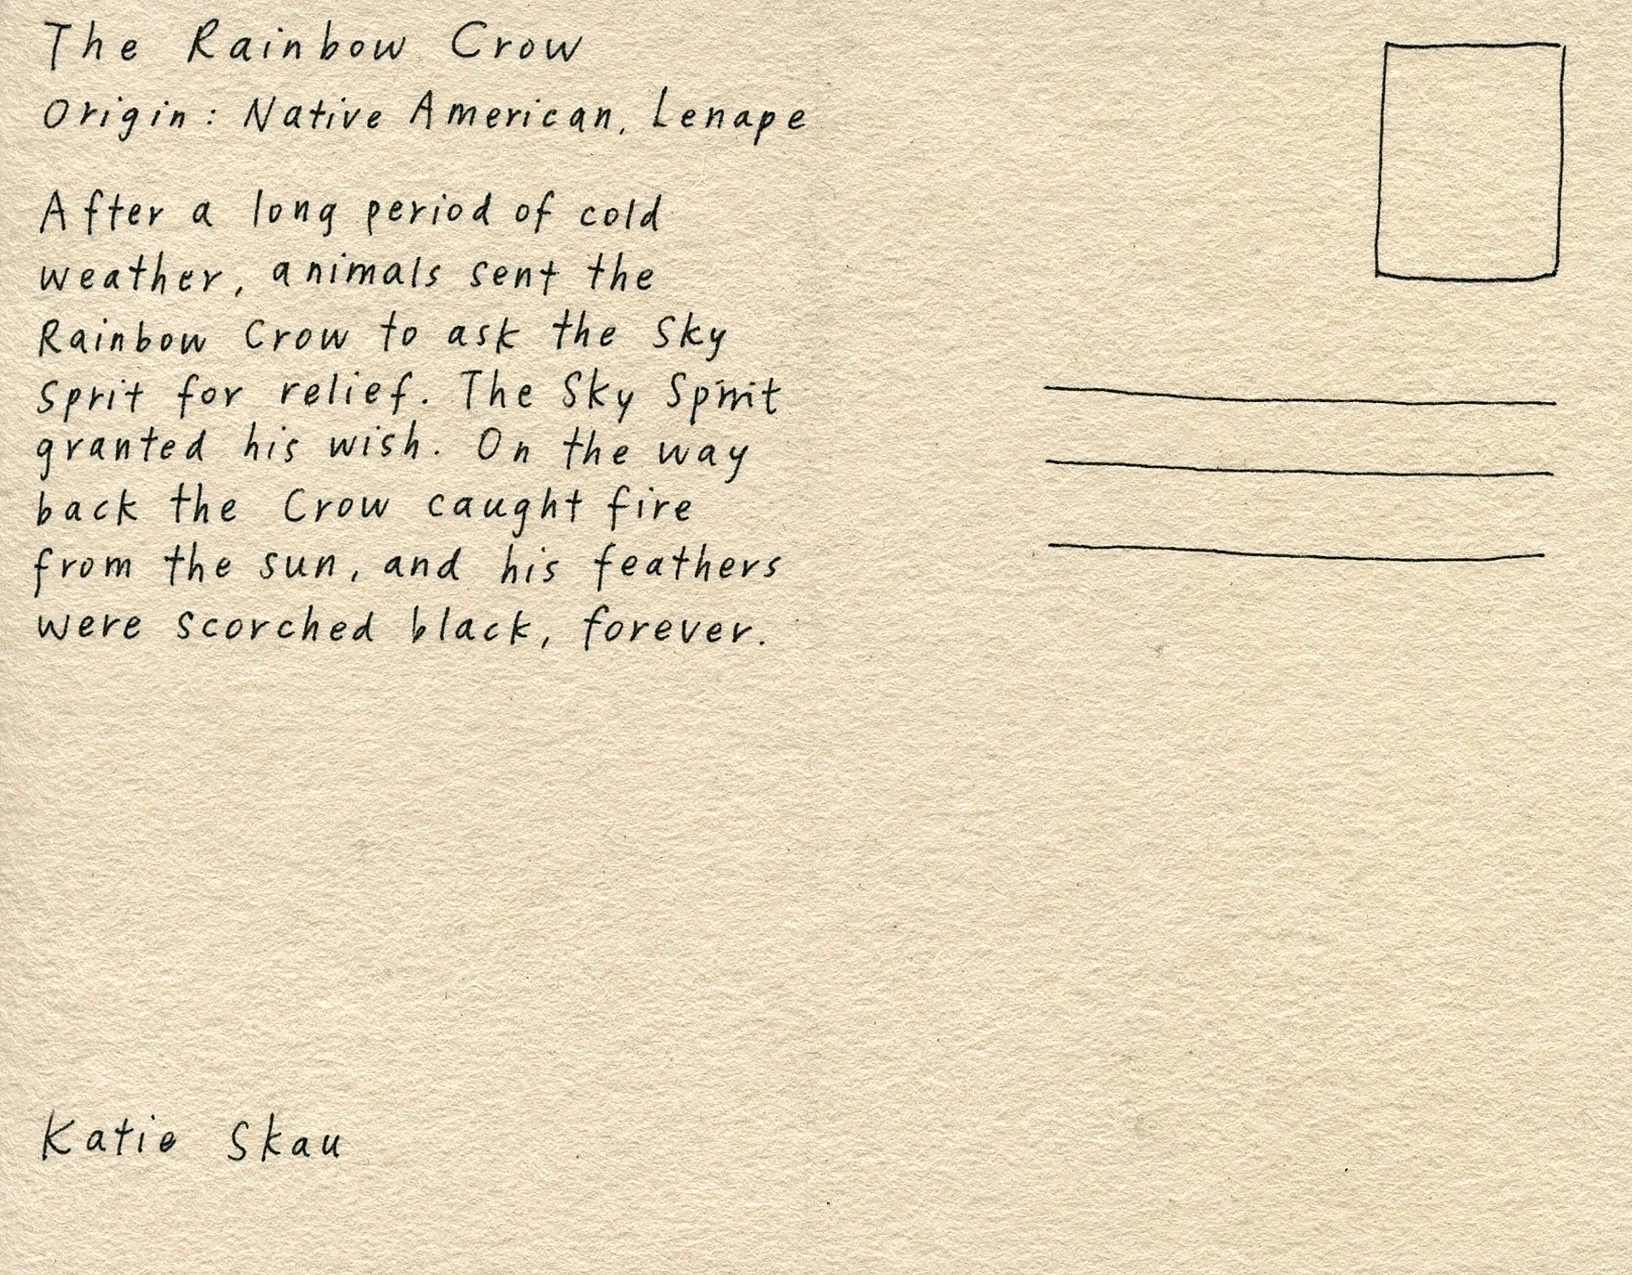 The Rainbow Crow
Origin: Native American, Lenape
After a long period of cold
weather, animals sent the
Rainbow Crow to ask the Sky
Sprit for relief. The Sky Spirit
granted his wish. On the way
back the Crow caught fire
from the sun, and his feathers
were scorched black, forever.
Katie Skau